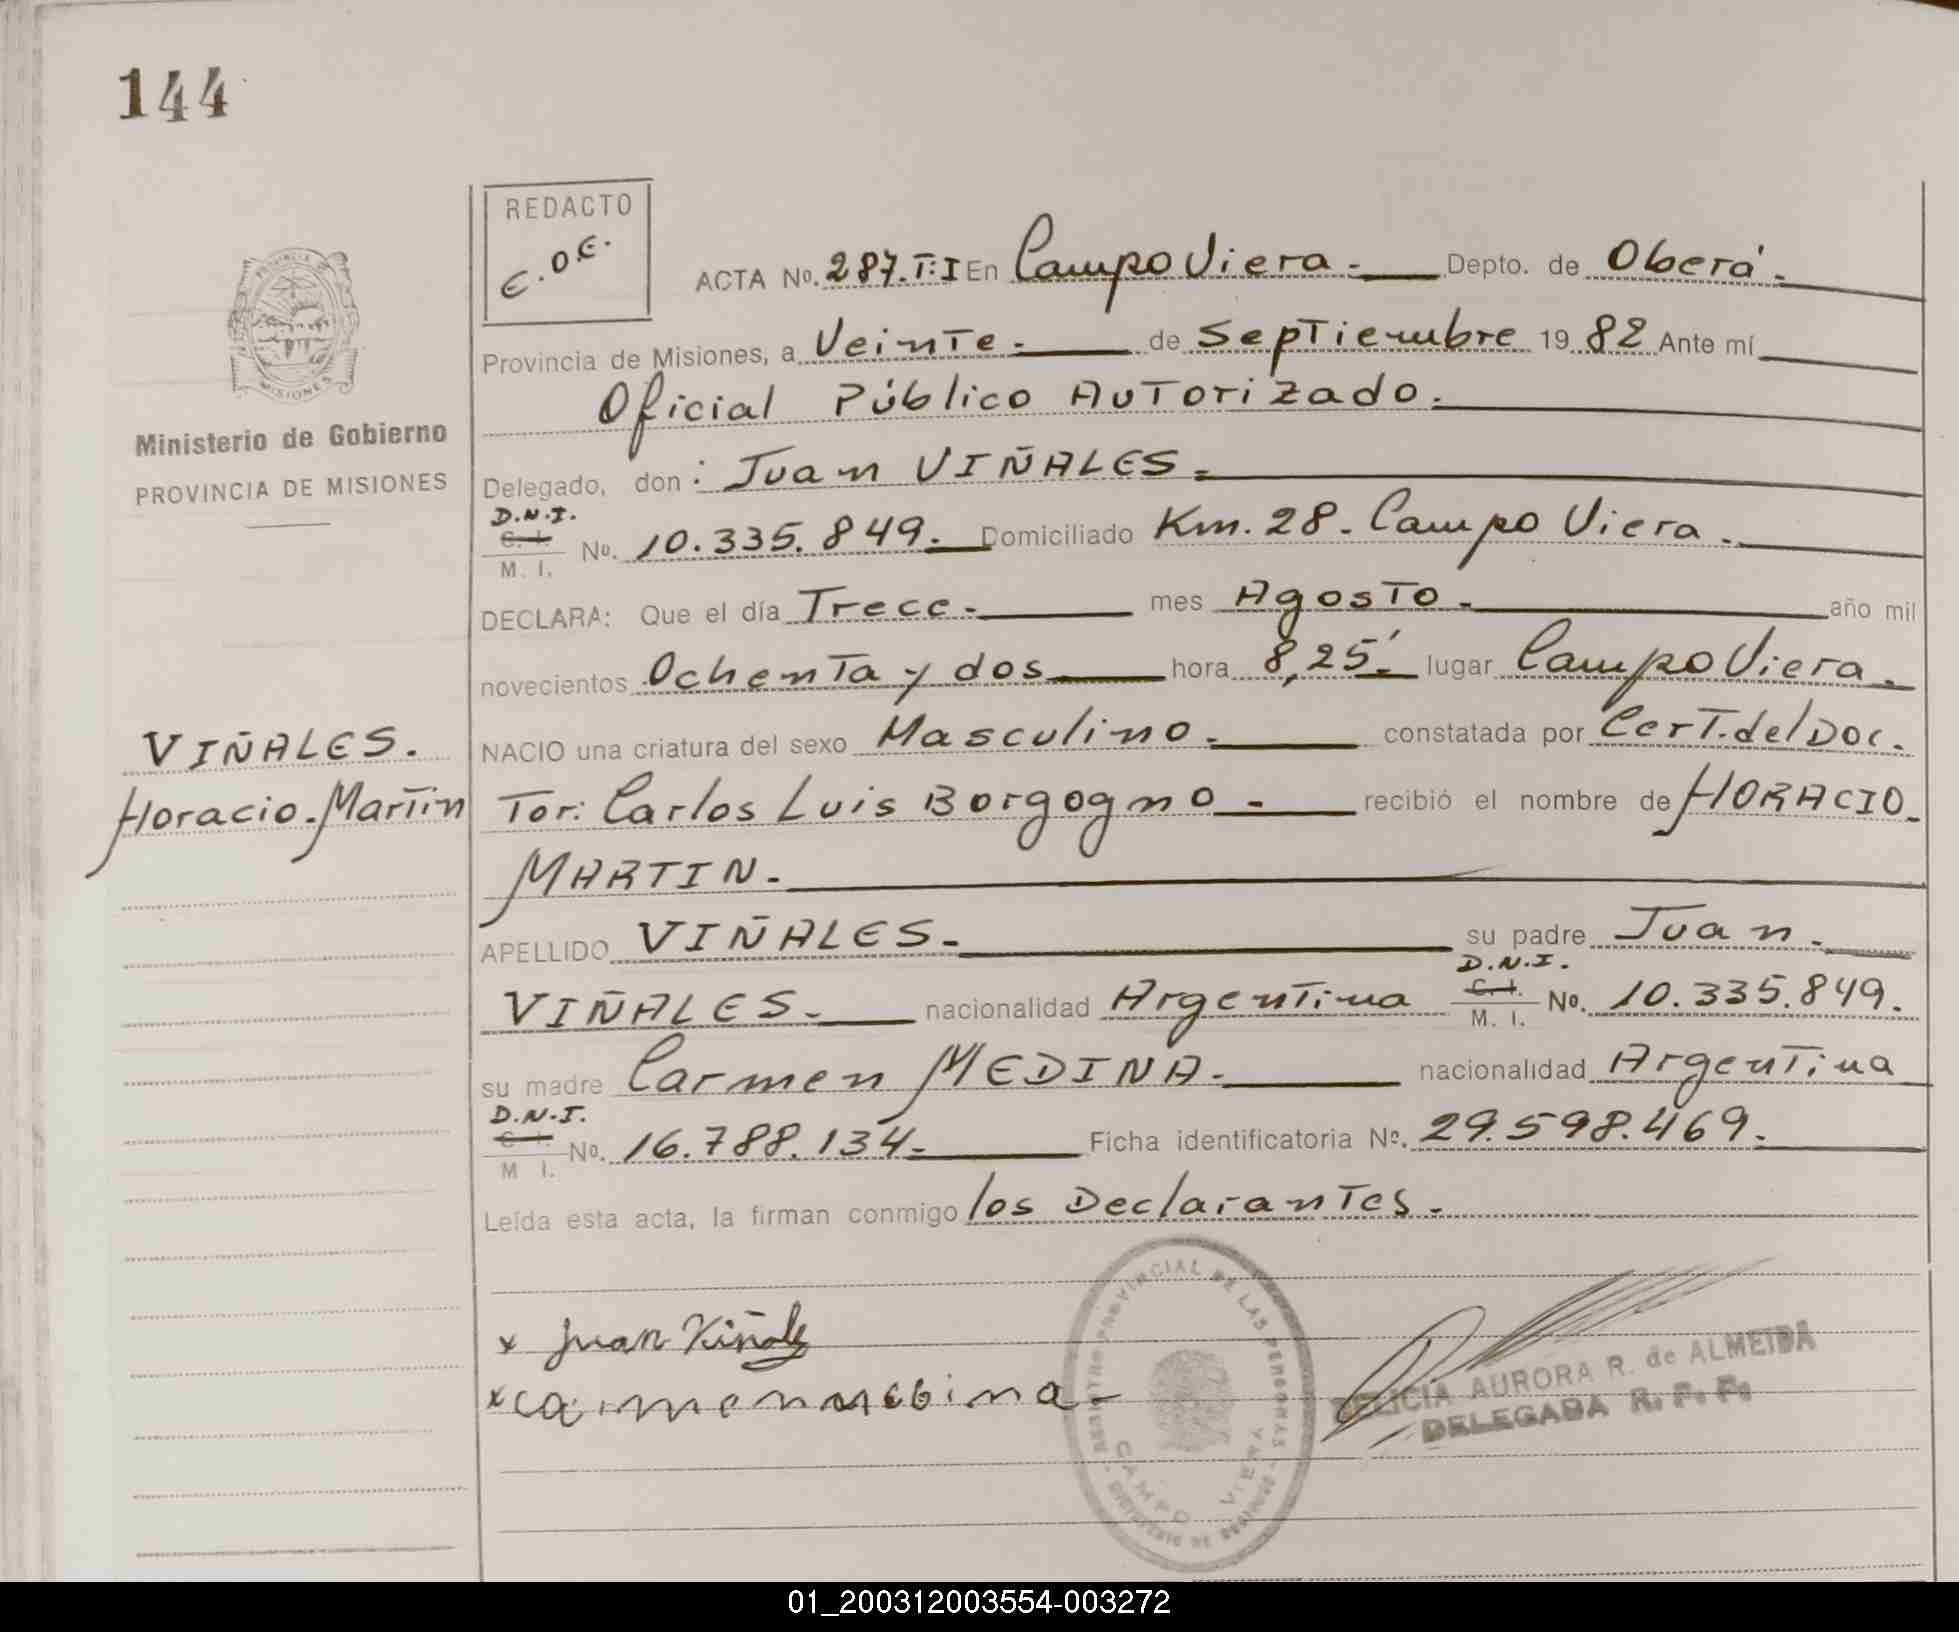 144
REDACTO
E.O.E.
ACTA No. 287.T:I En Campo Viera.- Depto. de Oberá.
Provincia de Misiones, a Veinte.- de Septiembre 19 82 Ante mí
Oficial Público Autorizado.
Delegado, don: Juan VIÑALES.
D.N.I.
C. I.
M. I.
No. 10.335.849. Domiciliado Km. 28. Campo Viera.
DECLARA: Que el día Trece.- mes Agosto.- año mil
novecientos Ochenta y dos hora 8,25'. lugar Campo Viera.
NACIO una criatura del sexo Masculino.- constatada por Cert. del Doc.
Tor: Carlos Luis Borgogno.- recibió el nombre de HORACIO
MARTIN.-
APELLIDO VIÑALES.- su padre Juan.
VIÑALES.- nacionalidad Argentina
D.N.I.
C. I.
M. I.
No. 10.335.849.
su madre Carmen MEDINA.- nacionalidad Argentina
D.N.I.
C. I.
M I.
No. 16.788.134.- Ficha identificatoria Nº. 29.598.469.
Leída esta acta, la firman conmigo los Declarantes.
PROVINCIA DE
MISIONES
Ministerio de Gobierno
PROVINCIA DE MISIONES
VIÑALES.
Horacio.Martin
x Juan Viñales
x
REGISTRO PROVINCIAL DE LAS PERSONAS
CAMPO VIERA
FELICIA AURORA R. de ALMEIDA
DELEGADA R. P. P.
01_200312003554-003272